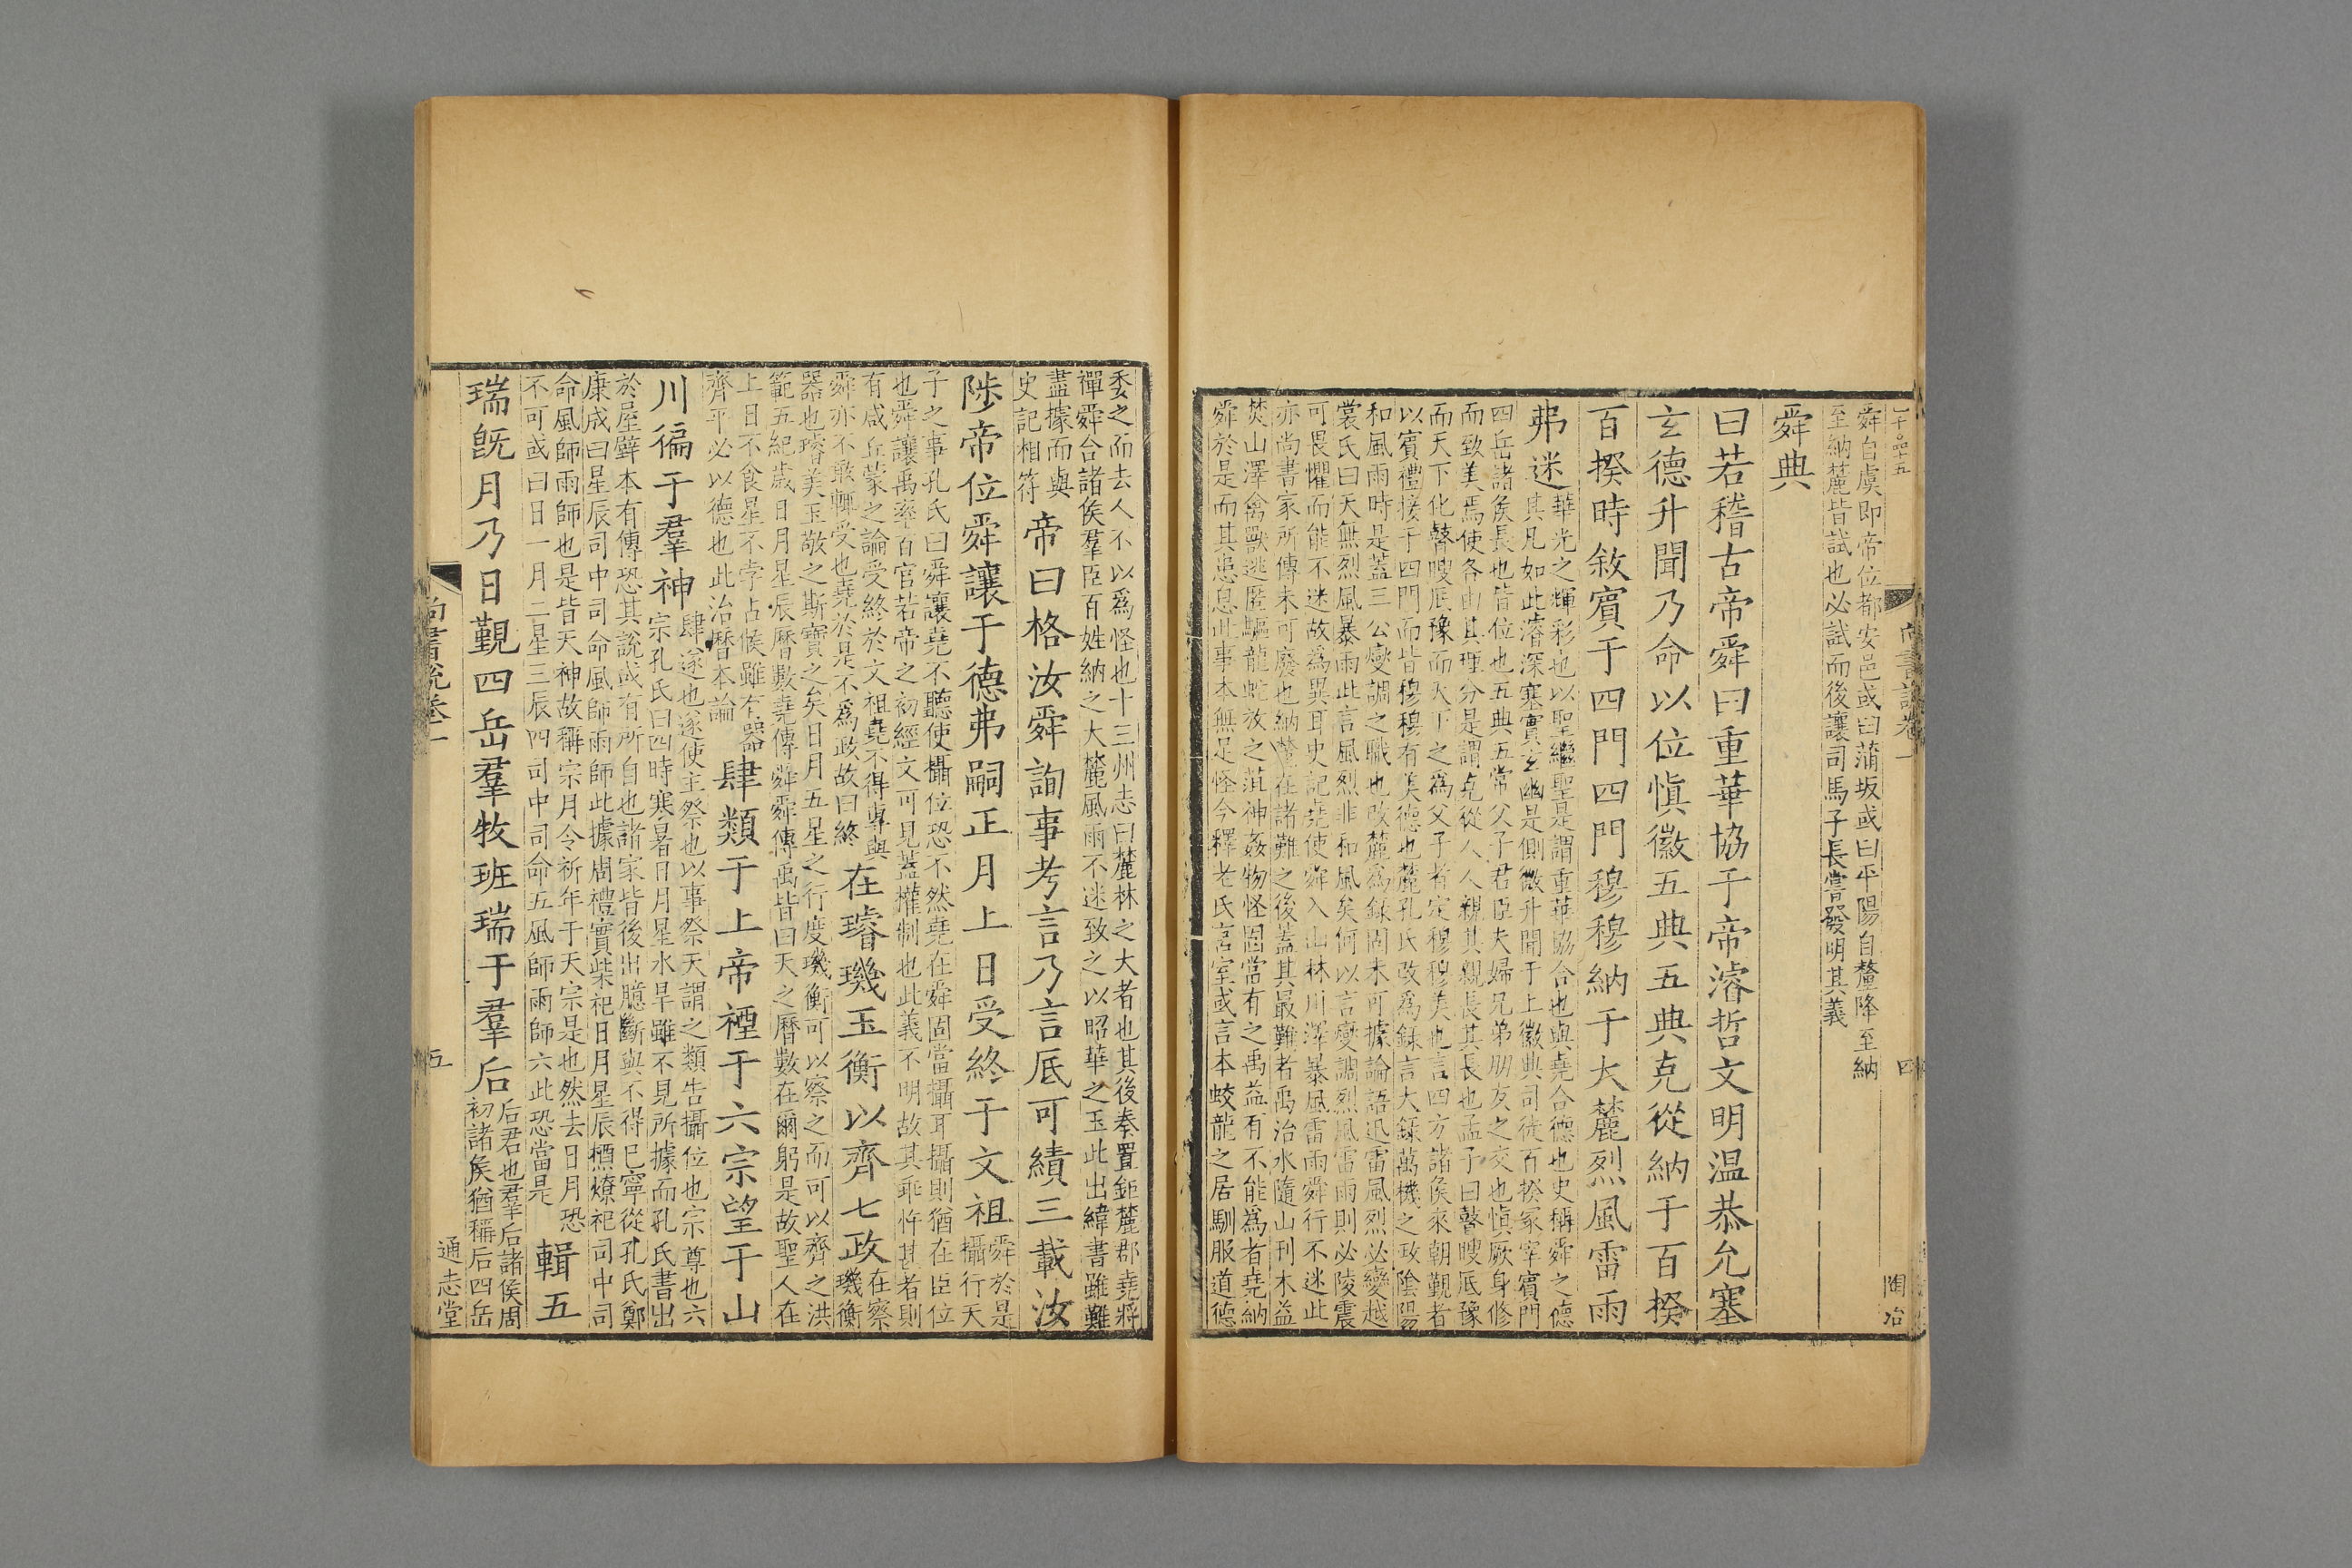 舜自虞即帝位都安邑或曰蒲坂或曰平陽自釐降至納
至納麓皆試也必試而後讓司馬子長嘗發明其義
舜典
曰若稽古帝舜曰重華協于帝濬哲文明温恭允塞
玄德升聞乃命以位慎徽五典五典克從納于百揆
百揆時敘賓于四門四門穆穆納于大麓烈風雷雨
弗迷
華光之輝彩也以聖繼聖是謂重華協合也與堯合德也史稱舜之德
其凡如此濬深塞實玄幽是側微升聞于上徽典司徒百揆冢宰賓門
四岳諸侯長也皆位也五典五常父子君臣夫婦兄弟朋友之交也慎厥身修
而致美焉使各由其理分是謂克從人人親其親長其長也孟子曰瞽瞍厎豫
而天下化瞽瞍厎豫而天下之為父子者定穆穆美也言四方諸侯來朝覲者
以賓禮接于四門而皆穆穆有美德也麓孔氏改為錄言大錄萬機之政陰陽
和風雨時是蓋三公變調之職也改麓為錄固未可據論語迅雷風烈必變越
裳氏曰天無烈風暴雨此言風烈非和風矣何以言變調烈風雷雨則必陵震
可畏懼而能不迷故為異耳史記堯使舜入山林川澤暴風雷雨舜行不迷此
亦尚書家所傳未可廢也納麓在諸難之後蓋其最難者禹治水隨山刊木益
焚山澤禽獸逃匿驅龍蛇放之菹神姦物怪固當有之禹益有不能為者堯納
舜於是而其患息此事本無足怪今釋老氏宮室或言本蛟龍之居馴服道德
尚書說卷一
四
陶冶
委之而去人不以為怪也十三州志曰麓林之大者也其後秦置鉅麓郡堯將
禪舜合諸侯羣臣百姓納之大麓風雨不迷致之以昭華之玉此出緯書雖難
盡據而與
史記相符
帝曰格汝舜詢事考言乃言厎可績三載汝
陟帝位舜讓于德弗嗣正月上日受終于文祖
舜於是
攝行天
子之事孔氏曰舜讓堯不聽使攝位恐不然堯在舜固當攝耳攝則猶在臣位
也舜讓禹率百官若帝之初經文可見蓋權制也此義不明故其乖忤甚者則
有咸丘蒙之論受終於文祖堯不得專與
舜亦不敢輒受也堯於是不為政故曰終
在璿璣玉衡以齊七政
在察
璣衡
器也璿美玉敬之斯寶之矣日月五星之行度璣衡可以察之而可以齊之洪
範五紀歲日月星辰曆數堯傳舜舜傳禹皆曰天之曆數在爾躬是故聖人在
上日不食星不孛占候雖有器
齊平必以德也此治曆本論
肆類于上帝禋于六宗望于山
川徧于羣神
肆遂也遂使主祭也以事祭天謂之類告攝位也宗尊也六
宗孔氏曰四時寒暑日月星水旱雖不見所據而孔氏書出
於屋壁本有傳恐其說或有所自也諸家皆後出臆斷與不得已寧從孔氏鄭
康成曰星辰司中司命風師雨師此據周禮實柴祀日月星辰槱燎祀司中司
命風師雨師也是皆天神故稱宗月令祈年于天宗是也然去日月恐
不可或曰日一月二星三辰四司中司命五風師雨師六此恐當是
輯五
瑞既月乃日覲四岳羣牧班瑞于羣后
后君也羣后諸侯周
初諸侯猶稱后四岳
尚書說卷一
五
通志堂